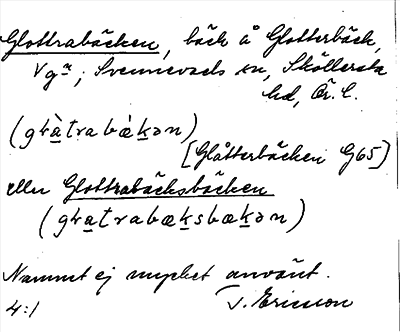 Glottrabäcken, bäck å Glotterbäck,
Vgn; Svennevads sn, Sköllersta
hd, Ör. l.
(glàtrabæ̀kən)
[Glåtterbäcken G65]
eller Glottrabäcksbäcken
(glatrabæksbækən)
Namnet ej mycket använt.
4:1 T. Ericsson